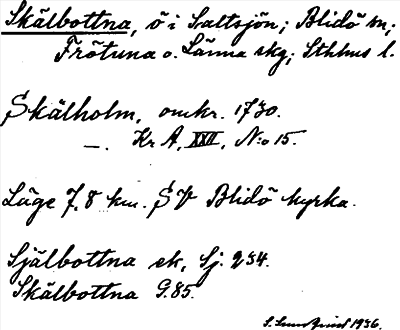 Skälbottna, ö i Saltsjön; Blidö sn;
Frötuna o. Länna skg; Sthlms l.
Skälholm, omkr. 1730.
—. Kr A, XXII, N:o 15.
Läge 7,8 km. SV Blidö kyrka.
Själbottna ek, Sj. 234.
Skälbottna G.85.
1936.